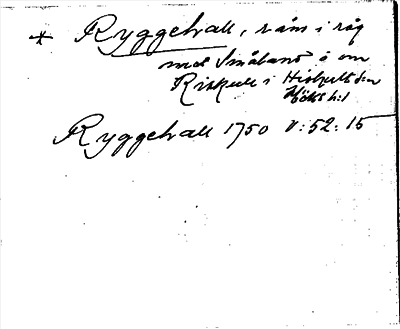 * Ryggehall, råm i råg
med Småland å om
Riskull i Hishult s:n
Höks h:d
Ryggehall 1750 V:52:15